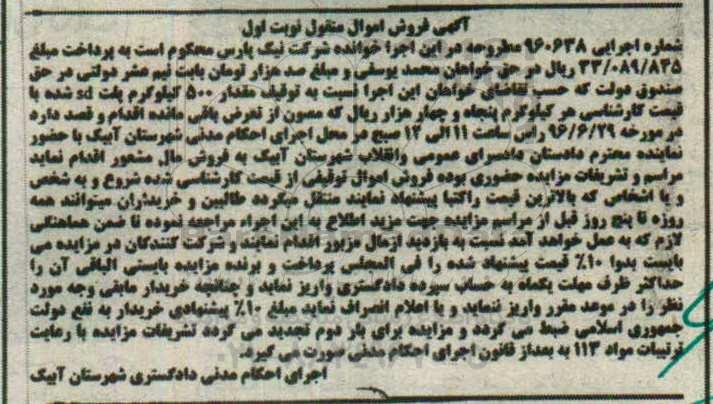 آگهی فروش اموال منقول نوبت اول
شماره اجرایی ۹۶۰۶۳۸ مطروحه در این اجرا خوانده شرکت نیک پارس محکوم است به پرداخت مبلغ
۲۳/۰۸۹/۸۳۵ ریال در حق خواهان محمد یوسفی و مبلغ صد هزار تومان بابت نیم عشر دولتی در حق
صندوق دولت که حسب تقاضای خواهان این اجرا نسبت به توقیف مقدار ۵۰۰ کیلوگرم پلت sd شده با
قیمت کارشناسی هر کیلوگرم پنجاه و چهار هزار ریال که مصون از تعرض باقی مانده اقدام و قصد دارد
در مورخه ۹۶/۶/۲۹ راس ساعت ۱۱ الی ۱۲ صبح در محل اجرای احکام مدنی شهرستان آبیک با حضور
نماینده محترم دادستان دادسرای عمومی وانقلاب شهرستان آبیک به فروش مال مشعور اقدام نماید
مراسم و تشریفات مزایده حضوری بوده فروش اموال توقیفی از قیمت کارشناسی شده شروع و به شخص
و یا اشخاص که بالاترین قیمت راکتبا پیشنهاد نمایند منتقل میگردد طالبین و خریداران میتوانند همه
روزه تا پنج روز قبل از مراسم مزایده جهت مزید اطلاع به این اجراء مراجعه نموده تا ضمن هماهنگی
لازم که به عمل خواهد آمد نسبت به بازدید ازمال مزبور اقدام نمایند و شرکت کنندگان در مزایده می
بایست بدوا ۱۰٪ قیمت پیشنهاد شده را فی المجلس پرداخت و برنده مزایده بایستی الباقی آن را
حداکثر ظرف مهلت یکماه به حساب سپرده دادگستری واریز نماید و چنانچه خریدار مابقی وجه مورد
نظر را در موعد مقرر واریز ننماید و یا اعلام انصراف نماید مبلغ ۱۰٪ پیشنهادی خریدار به نفع دولت
جمهوری اسلامی ضبط می گردد و مزایده برای بار دوم تجدید می گردد تشریفات مزایده با رعایت
ترتیبات مواد ۱۱۳ به بعداز قانون اجرای احکام مدنی صورت می گیرد.
اجرای احکام مدنی دادگستری شهرستان آبیک